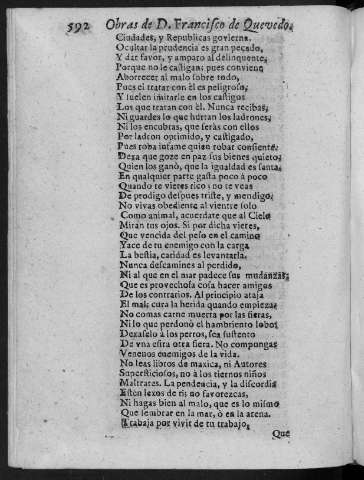 592 Obras de D. Francisco de Quevedo.
Ciudades, y Republicas govierna.
Ocultar la prudencia es gran pecado,
Y dar favor, y amparo al delinquente,
Porque no le castigan: pues conviene
Aborrecer al malo sobre todo,
Pues el tratar con él es peligroso,
Y suelen imitarle en los castigos
Los que tratan con él. Nunca recibas,
Ni guardes lo que hurtan los ladrones,
Ni los encubras, que seràs con ellos
Por ladron oprimido, y castigado,
Pues roba infame quien robar consiente.
Dexa que goze en paz sus bienes quieto,
Quien los ganò, que la igualdad es santa,
En qualquier parte gasta poco à poco
Quando te vieres rico: no te veas
De prodigo despues triste, y mendigo.
No vivas obediente al vientre solo
Como animal, acuerdate que al Cielo
Miran tus ojos. Si por dicha vieres,
Que vencida del peso en el camino
Yace de tu enemigo con la carga
La bestia, caridad es levantarla.
Nunca descamines al perdido,
Ni al que en el mar padece sus mudanzas,
Que es provechosa cosa hacer amigos
De los contrarios. Al principio ataja
El mal; cura la herida quando empieza;
No comas carne muerta por las fieras,
Ni lo que perdonò el hambriento lobo:
Dexaselo à los perros, sea sustento
De vna fiera otra fiera. No compongas
Venenos enemigos de la vida.
No leas libros de maxica, ni Autores
Supersticiosos, no à los tiernos niños
Maltrates. La pendencia, y la discordia
Estèn lexos de ti; no favorezcas,
Ni hagas bien al malo, que es lo mismo
Que sembrar en la mar, ò en la arena.
Trabaja por vivir de tu trabajo,
Que